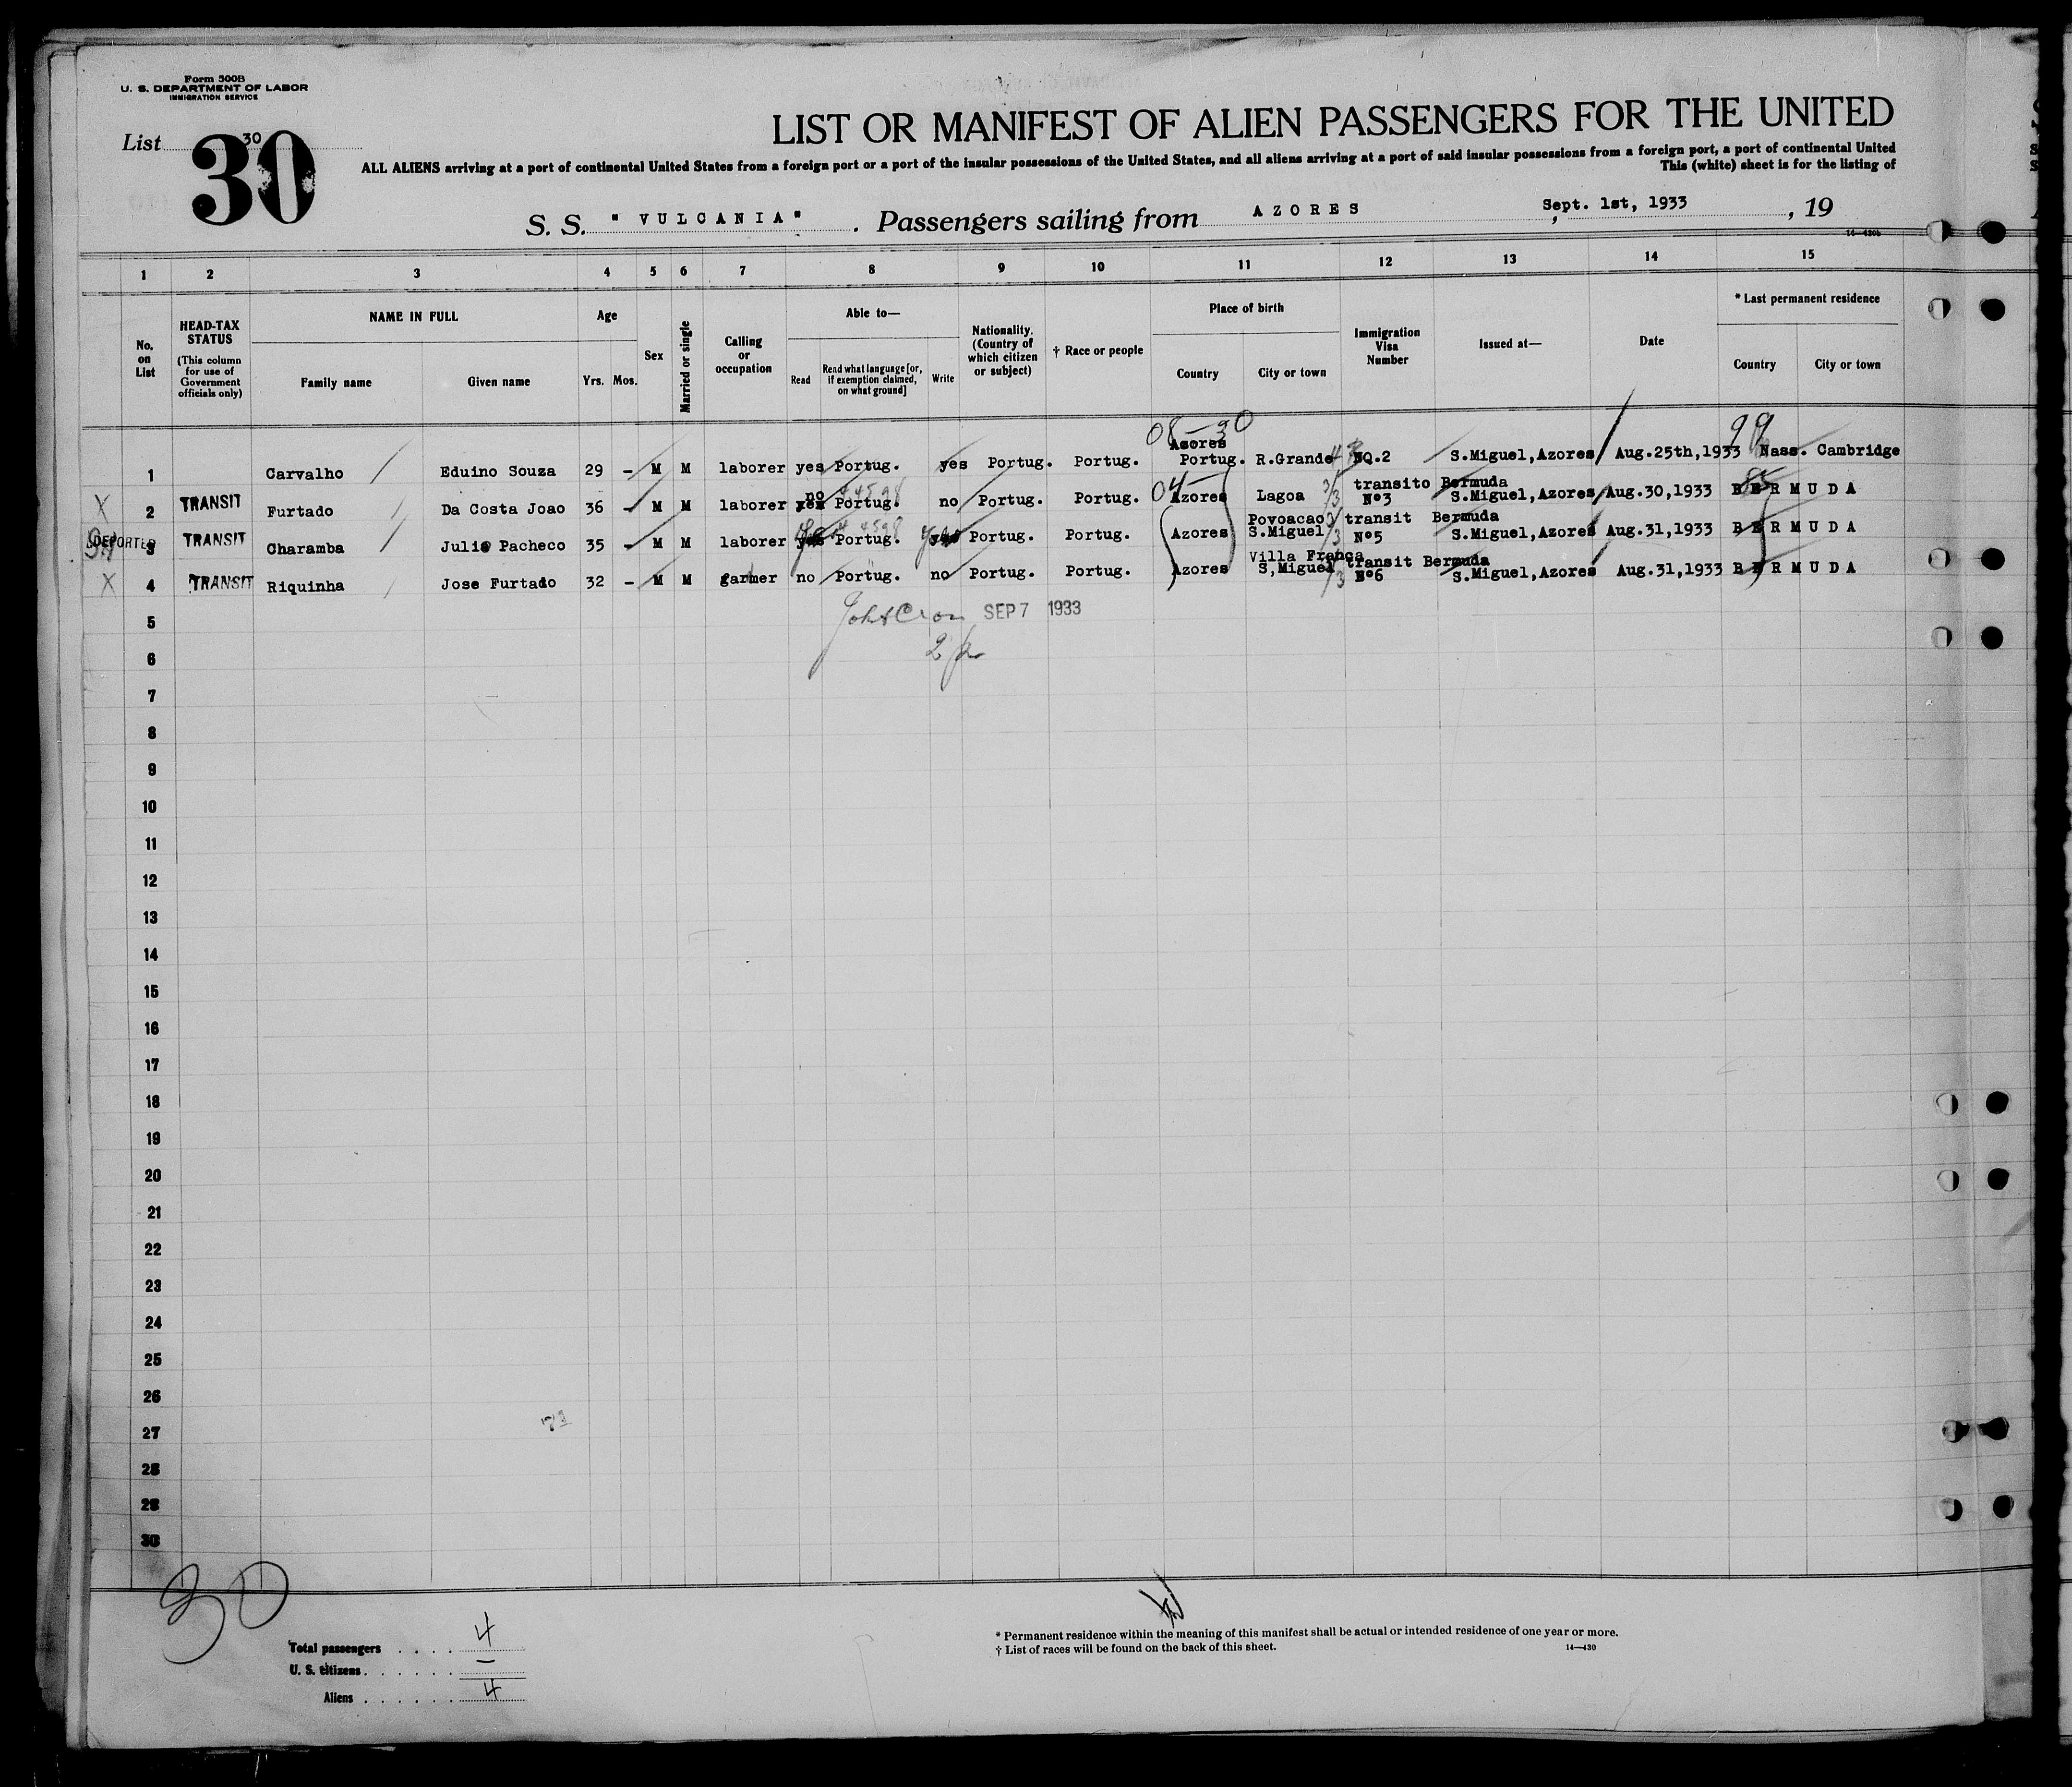 Form 500B
U. S. DEPARTMENT OF LABOR
IMMIGRATION SERVICE
List 30
30
LIST OR MANIFEST OF ALIEN PASSENGERS FOR THE UNITED
ALL ALIENS arriving at a port of continental United States from a foreign port or a port of the insular possessions of the United States, and all aliens arriving at a port of said insular possessions from a foreign port, a port of continental United
This (white) sheet is for the listing of
S. S. " VULCANIA" . Passengers sailing from AZORES , Sept. 1st, 1933 , 19
14—430b
1 2 3 4 5 6 7 8 9 10 11 12 13 14 15
No. on List
HEAD-TAX STATUS (This column for use of Government officials only)
NAME IN FULL
Family name Given name
Age
Yrs. Mos.
Sex
Married or single
Calling or occupation
Able to—
Read Read what language [or, if exemption claimed, on what ground] Write
Nationality. (Country of which citizen or subject)
† Race or people
Place of birth
Country City or town
Immigration Visa Number
Issued at—
Date
* Last permanent residence
Country City or town
08—30 99
Azores
1 Carvalho Eduino Souza 29 - M M laborer yes Portug. yes Portug. Portug. Portug. R.Grande NO.2 S.Miguel,Azores Aug.25th,1933 Nass. Cambridge
no 04— transito Bermuda
X 2 TRANSIT Furtado Da Costa Joao 36 - M M laborer yes Portug. no Portug. Portug. Azores Lagoa Nº3 S.Miguel,Azores Aug.30,1933 BERMUDA
Povoacao transit Bermuda
DEPORTED 3 TRANSIT Charamba Julio Pacheco 35 - M M laborer yes Portug. Portug. Portug. Azores S.Miguel Nº5 S.Miguel,Azores Aug.31,1933 BERMUDA
Villa Franca transit Bermuda
X 4 TRANSIT Riquinha Jose Furtado 32 - M M garmer no Portug. no Portug. Portug. Azores S,Miguel Nº6 S.Miguel,Azores Aug.31,1933 BERMUDA
5 SEP 7 1933
6
7
8
9
10
11
12
13
14
15
16
17
18
19
20
21
22
23
24
25
26
27
28
29
30
30
Total passengers . . . . 4
U. S. citizens . . . . . . —
Aliens . . . . . . 4
* Permanent residence within the meaning of this manifest shall be actual or intended residence of one year or more.
† List of races will be found on the back of this sheet.
14—430